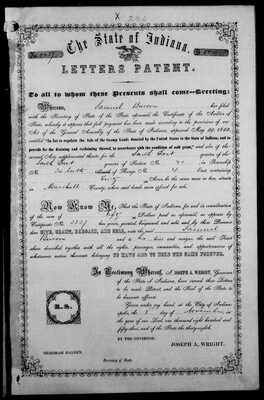 The State of Indiana.
LETTERS PATENT.
To all to whom these Presents shall come—Greeting:
Whereas, Samuel has filed
with the Secretary of State of the State aforesaid, the Certificate of the Auditor of
State, whereby it appears that full payment has been made according to the provisions of an
Act of the General Assembly of the State of Indiana, approved May 1852,
entitled "An Act to regulate the Sale of the Swamp Lands donated by the United States to the State of Indiana, and to
provide for the draining and reclaiming thereof, in accordance with the condition of said grant," and also the
several Acts supplementary thereto, for the South East quarter of the
South East quarter of Section Township
North of Range East
forty Acres be the same more or less, situate
in Marshall County, when said lands were offered for sale.
Now Know Ye, That the State of Indiana for and in consideration
of the sum of fifty Dollars paid as aforesaid, as appears by
Certificate No. has given, granted, bargained, and sold, and by these Presents
does GIVE, GRANT, BARGAIN, AND SELL, unto the said Samuel
and to his heirs and assigns, the said Tract
above described, together with all the rights, privileges, immunities, and appurtenances of
whatsoever nature thereunto belonging TO HAVE AND TO HOLD THE SAME FOREVER.
In Testimony Whereof, I, JOSEPH A. WRIGHT, Governor
of the State of Indiana, have caused these Letters
to be made Patent, and the Seal of the State to
be hereunto affixed.
Given under my hand, at the City of Indianapolis,
the day of November in
the year of our Lord one thousand eight hundred and
fifty and of the State the
BY THE GOVERNOR,
JOSEPH A. WRIGHT.
L. S.
NEHEMIAH HAYDEN,
Secretary of State.